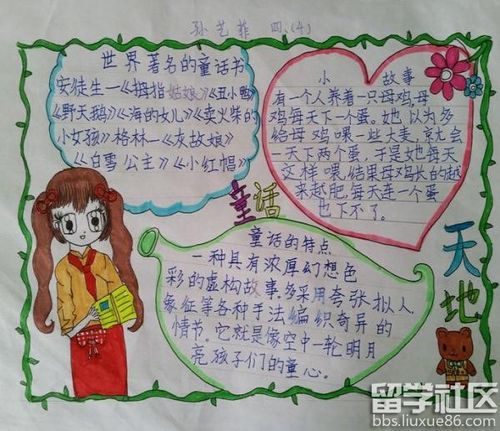 孙艺菲 四.(4)
世界著名的童话书
安徒生一《拇指姑娘》《丑小鸭》
《野天鹅》《海的女儿》《卖火柴的
小女孩》格林一《灰故娘》
《白雪公主》《小红帽》
小 故事
有一个人养着一只母鸡,母
鸡每天下一个蛋。她以为多
给母鸡喂一些大麦,就会
一天下两个蛋,于是她每天
这样喂,结果母鸡长的越
来越肥,每天连一个蛋
也下不了。
童话
天地
童话的特点
一种具有浓厚幻想色
彩的虚构故事,多采用夸张.拟人
象征等各种手法编织奇异的
情节。它就是像空中一轮明月
亮孩子们的童心。
留学社区
bbs.liuxue86.com